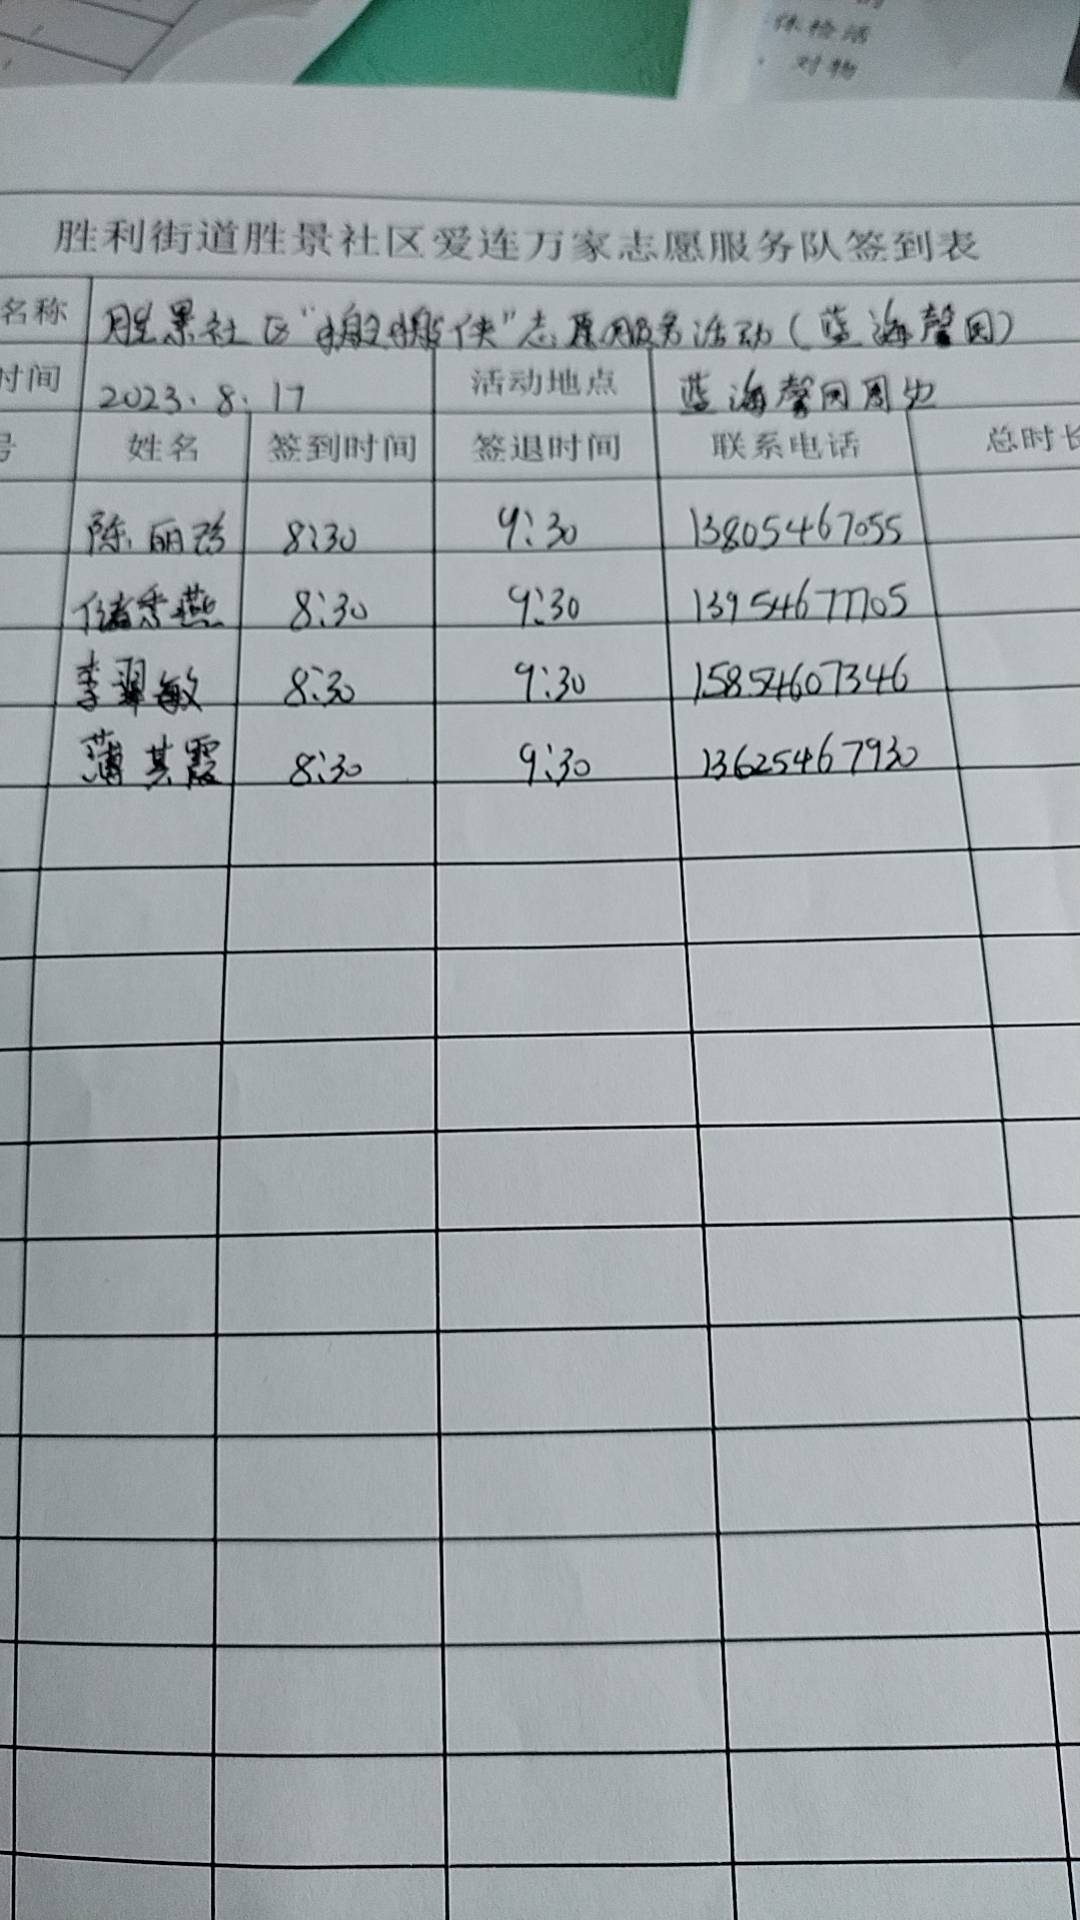 体检活
对物
胜利街道胜景社区爱连万家志愿服务队签到表
名称 胜景社区“搬搬侠”志愿服务活动(蓝海馨园)
时间 2023.8.17 活动地点 蓝海馨园周边
号 姓名 签到时间 签退时间 联系电话 总时长
陈丽 8:30 9:30 13805467055
储秀燕 8:30 9:30 13954677705
李翠敏 8:30 9:30 15854607346
薄其霞 8:30 9:30 13625467930